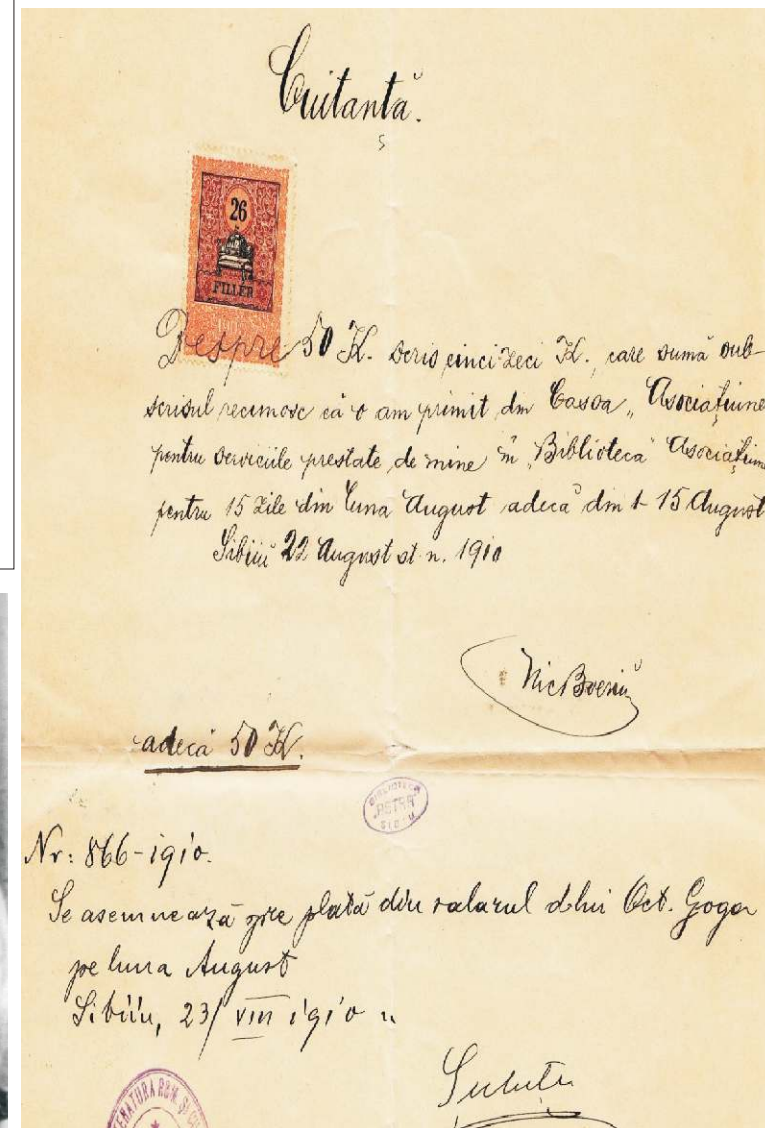 Cuitanță.
26
FILLÉR
Despre 50 K. scris cinci zeci K., care sumă sub-
scrisul recunosc că o am primit din Cassa „Asociațiune
pentru serviciile prestate de mine în „Biblioteca" Asociațiun
pentru 15 zile din luna August adecă din 1-15 August
Sibiiu 22 August st. n. 1910
Nic Boeriu
adecă 50 K.
BIBLIOTECA
"ASTRA"
SIBIU
Nr: 866-1910.
Se asemnează spre plată din salarul d-lui Oct. Goga
pe luna August
Sibiiu, 23/VIII 1910 n
Suluțu